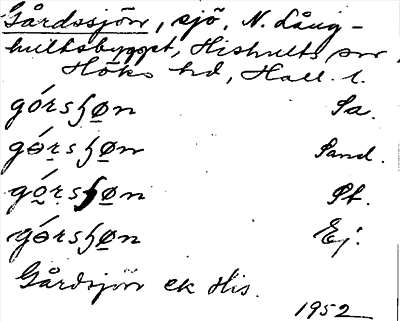 Gårdssjön, sjö, N. Lång-
hultsbygget, Hishults sn,
Höks hd, Hall. l.
górsɧøn Sa.
gɵ́rsɧøn Sand.
gǫ́rsɧøn Pt.
gɵ́rsɧøn Ej.
Gårdsjön ek His.
1952